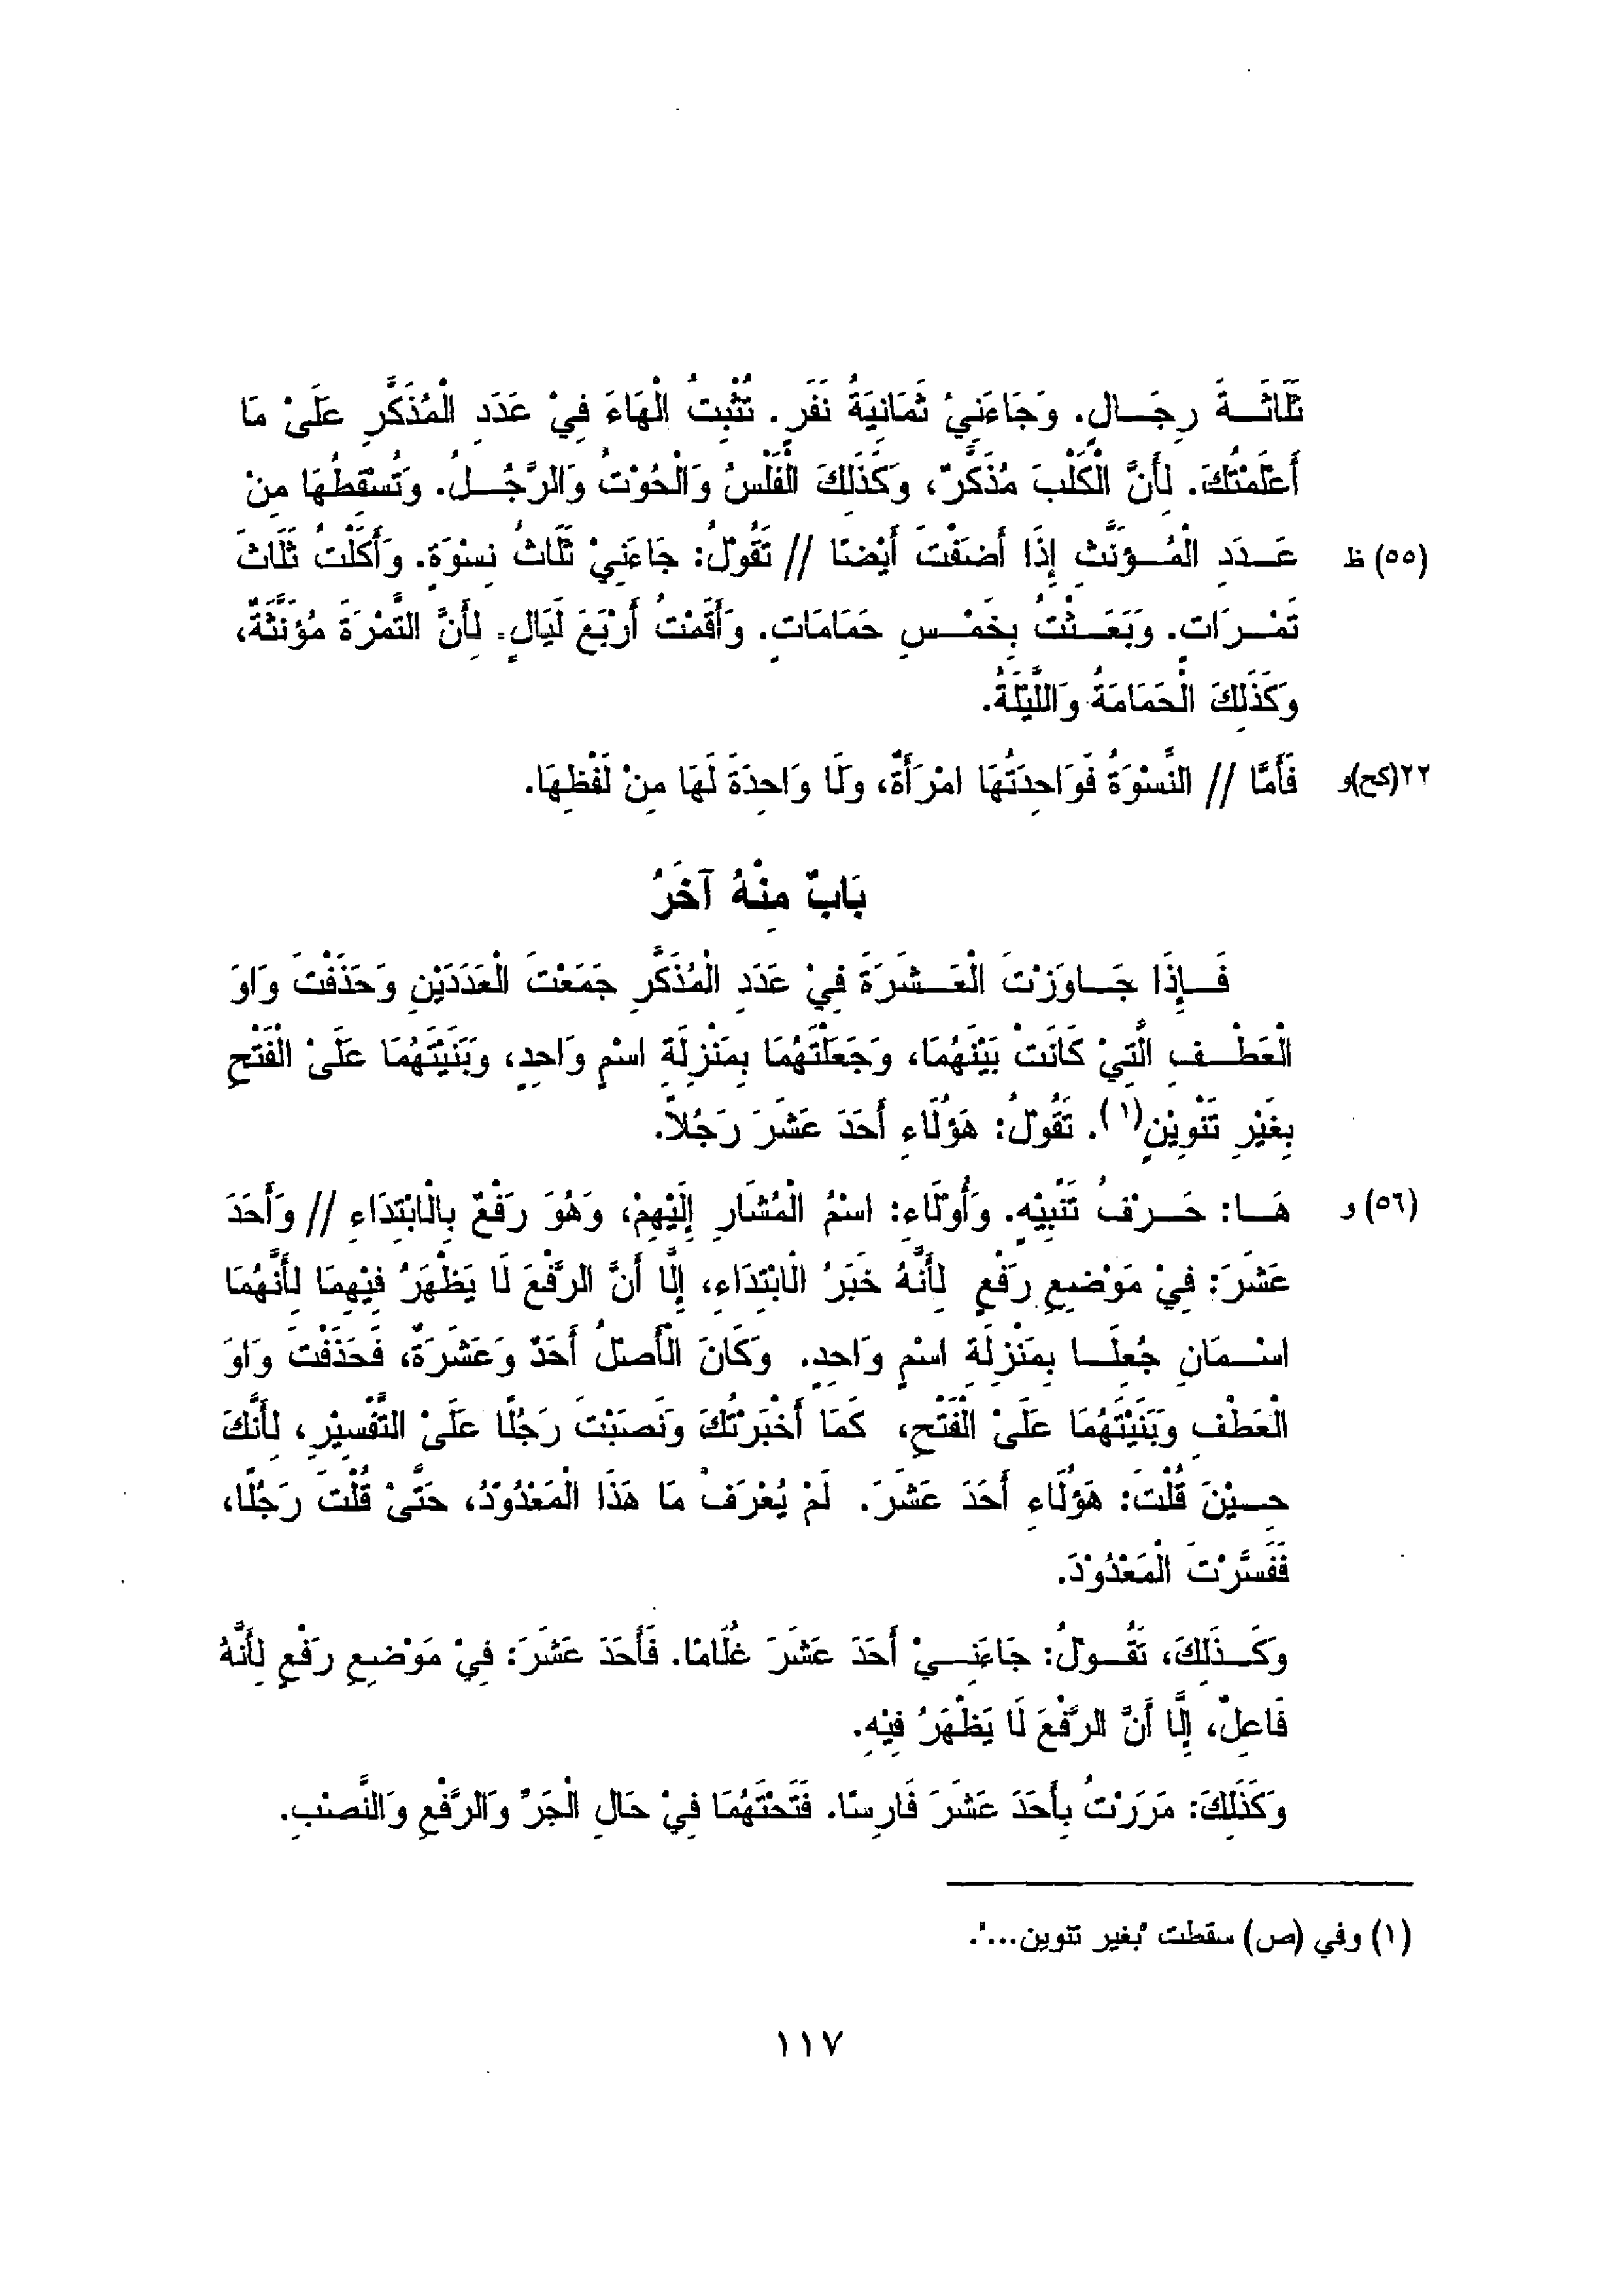 ثَلَاثَةَ رِجَالٍ. وَجَاءَنِيْ ثَمَانِيَةُ نَفَرٍ. تُثْبِتُ الْهَاءَ فِيْ عَدَدِ الْمُذَكَّرِ عَلَىْ مَا
أَعْلَمْتُكَ. لِأَنَّ الْكَلْبَ مُذَكَّرٌ، وَكَذَلِكَ الْفَلْسُ وَالْحُوْتُ وَالرَّجُلُ. وَتُسْقِطُهَا مِنْ
(٥٥) ظ عَدَدِ الْمُؤَنَّثِ إِذَا أَضَفْتَ أَيْضًا // تَقُوْلُ: جَاءَنِيْ ثَلَاثُ نِسْوَةٍ. وَأَكَلْتُ ثَلَاثَ
تَمْرَاتٍ. وَبَعَثْتُ بِخَمْسِ حَمَامَاتٍ. وَأَقَمْتُ أَرْبَعَ لَيَالٍ. لِأَنَّ التَّمْرَةَ مُؤَنَّثَةٌ،
وَكَذَلِكَ الْحَمَامَةُ وَاللَّيْلَةُ.
٢٢(كح)و فَأَمَّا // النِّسْوَةُ فَوَاحِدَتُهَا امْرَأَةٌ، وَلَا وَاحِدَةَ لَهَا مِنْ لَفْظِهَا.
بَابٌ مِنْهُ آخَرُ
فَإِذَا جَاوَزْتَ الْعَشَرَةَ فِيْ عَدَدِ الْمُذَكَّرِ جَمَعْتَ الْعَدَدَيْنِ وَحَذَفْتَ وَاوَ
الْعَطْفِ الَّتِيْ كَانَتْ بَيْنَهُمَا، وَجَعَلْتَهُمَا بِمَنْزِلَةِ اسْمٍ وَاحِدٍ، وَبَنَيْتَهُمَا عَلَىْ الْفَتْحِ
بِغَيْرِ تَنْوِيْنٍ(١). تَقُوْلُ: هَؤُلَاءِ أَحَدَ عَشَرَ رَجُلاً.
(٥٦) و هَا: حَرْفُ تَنْبِيْهٍ. وَأُولَاءِ: اسْمُ الْمُشَارِ إِلَيْهِمْ، وَهُوَ رَفْعٌ بِالْابْتِدَاءِ // وَأَحَدَ
عَشَرَ: فِيْ مَوْضِعِ رَفْعٍ لِأَنَّهُ خَبَرُ الْابْتِدَاءِ، إِلَّا أَنَّ الرَّفْعَ لَا يَظْهَرُ فِيْهِمَا لِأَنَّهُمَا
اسْمَانِ جُعِلَا بِمَنْزِلَةِ اسْمٍ وَاحِدٍ. وَكَانَ الْأَصْلُ أَحَدٌ وَعَشَرَةٌ، فَحَذَفْتَ وَاوَ
الْعَطْفِ وَبَنَيْتَهُمَا عَلَىْ الْفَتْحِ، كَمَا أَخْبَرْتُكَ وَنَصَبْتَ رَجُلًا عَلَىْ التَّفْسِيْرِ، لِأَنَّكَ
حِيْنَ قُلْتَ: هَؤُلَاءِ أَحَدَ عَشَرَ. لَمْ يُعْرَفْ مَا هَذَا الْمَعْدُوْدُ، حَتَّىْ قُلْتَ رَجُلًا،
فَفَسَّرْتَ الْمَعْدُوْدَ.
وَكَذَلِكَ، تَقُوْلُ: جَاءَنِيْ أَحَدَ عَشَرَ غُلَامًا. فَأَحَدَ عَشَرَ: فِيْ مَوْضِعِ رَفْعٍ لِأَنَّهُ
فَاعِلٌ، إِلَّا أَنَّ الرَّفْعَ لَا يَظْهَرُ فِيْهِ.
وَكَذَلِكَ: مَرَرْتُ بِأَحَدَ عَشَرَ فَارِسًا. فَتَحْتَهُمَا فِيْ حَالِ الْجَرِّ وَالرَّفْعِ وَالنَّصْبِ.
(١) وفي (ص) سقطت "بغير تنوين...".
١١٧